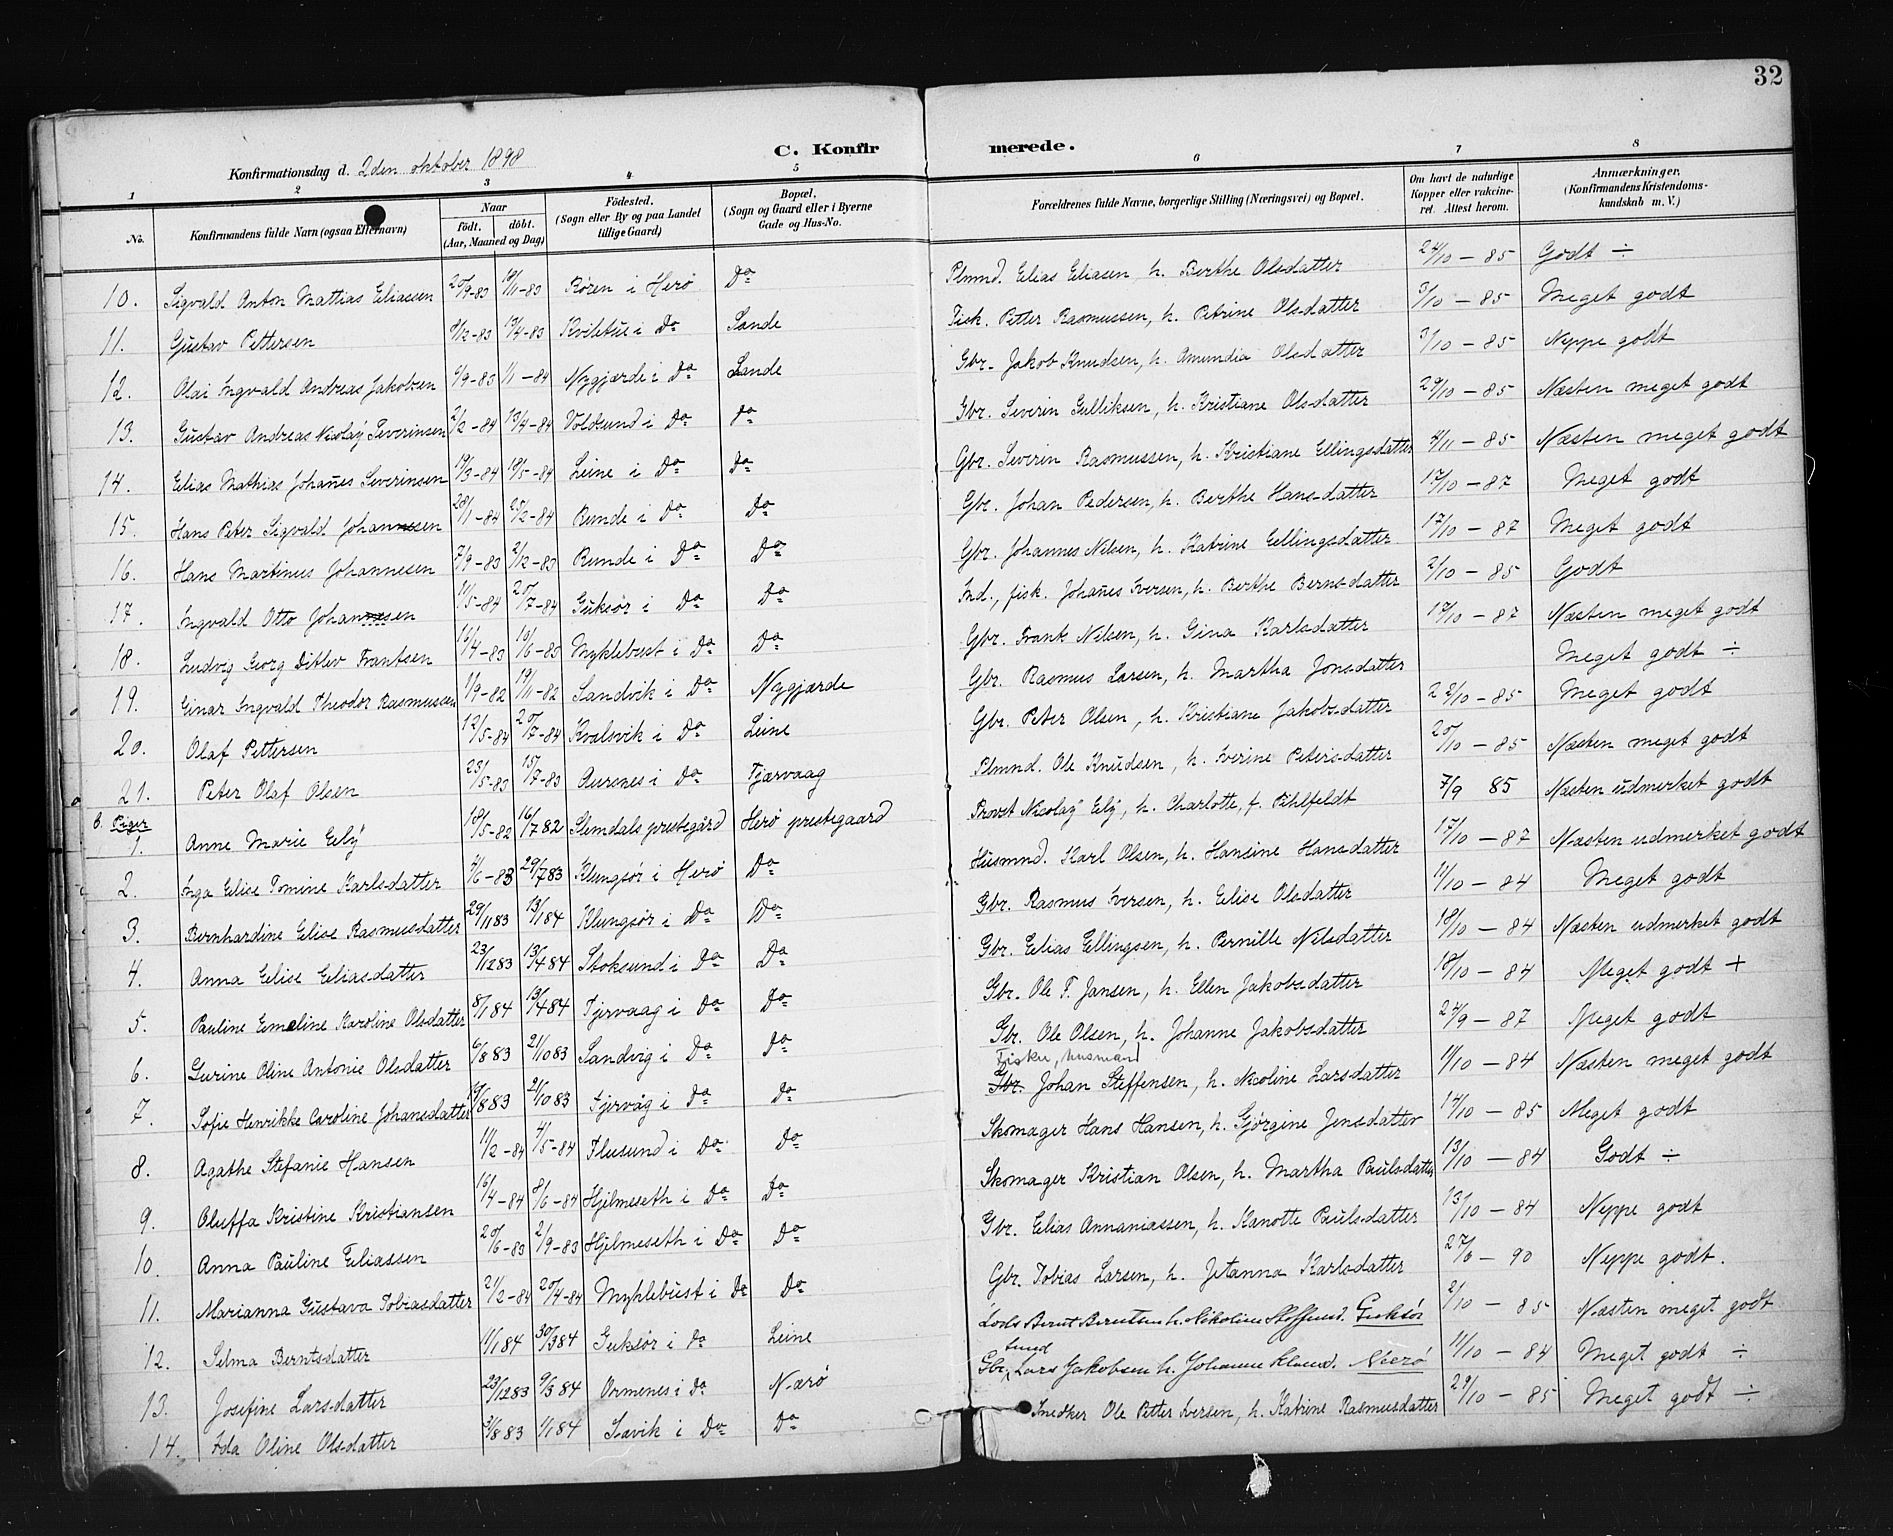 32
C. Konfirmerede.
Konfirmationsdag d. 2den oktober 1898
1 2 3 4 5 6 7 8
No. Konfirmandens fulde Navn (ogsaa Efternavn) Naar født. døbt. (Aar, Maaned og Dag) Fødested. (Sogn eller By og paa Landet tillige Gaard) Bopæl. (Sogn og Gaard eller i Byerne Gade og Hus-No. Forældrenes fulde Navne, borgerlige Stilling (Næringsvei) og Bopæl. Om havt de naturlige Kopper eller vakcineret. Attest herom. Anmærkninger. (Konfirmandens Kristendomskundskab m. V.)
10. Sigvald Anton Mathias Eliassen 20/9-83 18/11-83 Røren i Herø Do Plmnd. Elias Eliasen, h. Berthe Olsdatter 24/10 - 85 Godt ÷
11. Gustav Pettersen Kviletue i Do Sande Fisk. Petter Rasmussen, h. Petrine Olsdatter 3/10 - 85 Meget godt
12. Olai Ingvald Andreas Jakobsen 6/9-83 1/1-84 Nygjærde i Do Sande Gbr. Jakob Knudsen, h. Amundia Olsdatter 3/10 - 85 Neppe godt
13. Gustav Andreas Nicolaÿ Severinsen 2/2-84 13/4-84 Voldsund i Do Do Gbr. Severin Gulliksen, h. Kristiane Olsdatter 29/10 - 85 Næsten meget godt
14. Elias Mathias Johan̄es Severinsen 19/3-84 18/5-84 Leine i Do Do Gbr. Severin Rasmussen, h. Kristiane Ellingsdatter 4/11 - 85 Næsten meget godt
15. Hans Peter Sigvald Johannesen 28/1-84 25/2-84 Runde i Do Do Gbr. Johan Pedersen, h. Berthe Hansdatter 17/10 - 87 Meget godt
16. Hans Martinus Johannesen 7/9-83 2/12-83 Runde i Do Do Gbr. Johannes Nilsen, h. Katrine Ellingsdatter 17/10 - 87 Meget godt
17. Ingvald Otto Johannesen 11/5-84 20/7-84 Guksør i Do Do Ind., fisk. Johan̄es Iversen, h. Berthe Berntsdatter 2/10 - 85 Godt
18. Ludvig Georg Ditlev Frantsen Myklebust i Do Do Gbr. Frank Nilsen, h. Gina Karlsdatter 17/10 - 87 Næsten meget godt
19. Einar Ingvald Theodor Rasmussen 1/9-82 19/11-82 Sandvik i Do Nygjærde Gbr. Rasmus Larsen, h. Martha Jonsdatter Meget godt ÷
20. Olaf Pettersen 12/5-84 20/7-84 Kvalsvik i Do Leine Gbr. Peter Olsen, h. Kristiane Jakobsdatter 22/10 - 85 Meget godt
21. Peter Olaf Olsen 25/5-83 15/7-83 Aurenes i Do Tjærvaag Plmnd. Ole Knudsen, h. Iverine Petersdatter 20/10 - 85 Næsten meget godt
b. Piger
1. Anne Marie Eibÿ 18/5-82 16/7 82 Slemdals prestegård Herø prestegaard Provst Nicolaÿ Eibÿ, h. Charlotte, f. Pihlfeldt 7/9 85 Næsten udmerket godt
2. Inga Elise Tomine Karlsdatter 4/6-83 29/7 83 Klungsør i Herø Do Husmnd. Karl Olsen, h. Hansine Hansdatter 17/10 - 87 Næsten udmerket godt
3. Bernhardine Elise Rasmusdatter 29/11 83 13/1 84 Klungsør i Do Do Gbr. Rasmus Iversen, h. Elise Olsdatter 11/10 - 84 Meget godt
4. Anna Elise Eliasdatter 23/12 83 13/4 84 Stoksund i Do Do Gbr. Elias Ellingsen, h. Pernille Nilsdatter 18/10 - 84 Næsten udmerket godt
5. Pauline Emeline Karoline Olsdatter 8/1 84 13/4 84 Tjervaag i Do Do Gbr. Ole T. Jansen, h. Ellen Jakobsdatter 18/10 - 84 Meget godt +
6. Gurine Oline Antonie Olsdatter 6/8 83 21/10 83 Sandvig i Do Do Gbr. Ole Olsen, h. Johanne Jakobsdatter 24/9 - 87 Meget godt
Fisker, husmand
7. Sofie Henrikke Caroline Johansdatter 21/10 83 Tjervåg i Do Do Gbr. Johan Steffensen, h. Nicoline Larsdatter 11/10 - 84 Næsten meget godt
8. Agathe Stefanie Hansen 11/2-84 4/5-84 Flusund i Do Do Skomager Hans Hansen, h. Gjørgine Jensdatter 14/10 - 85 Meget godt
9. Oluffa Kristine Kristiansen 16/4-84 8/6-84 Hjelmeseth i Do Do Skomager Kristian Olsen, h. Martha Paulsdatter 13/10 - 84 Godt ÷
10. Anna Pauline Eliassen 20/6-83 2/9-83 Hjelmeseth i Do Do Gbr. Elias Annaniassen, h. Kanotte Paulsdatter 13/10 - 84 Neppe godt
11. Marianna Gustava Tobiasdatter 21/2-84 20/4-84 Myklebust i Do Do Gbr. Tobias Larsen, h. Jetanna Karlsdatter - 90 Neppe godt.
12. Selma Berntsdatter 1/1 84 30/3 84 Guksør i do Leine Lods Bernt Berntsen h. Nikoline Steffensd. Guksør 2/10 - 85 Næsten meget godt
13. Josefine Larsdatter 23/12 83 9/3 84 Ormenes i do Nærø Gbr, Lars Jakobsen h. Johanne Nærø 11/10 - 84 Meget godt ÷
14. Ida Oline Olsdatter 1/1 84 Sævik i Do Do Snedker Ole Petter Iversen, h. Katrine Rasmusdatter 29/10 - 85 Meget godt ÷